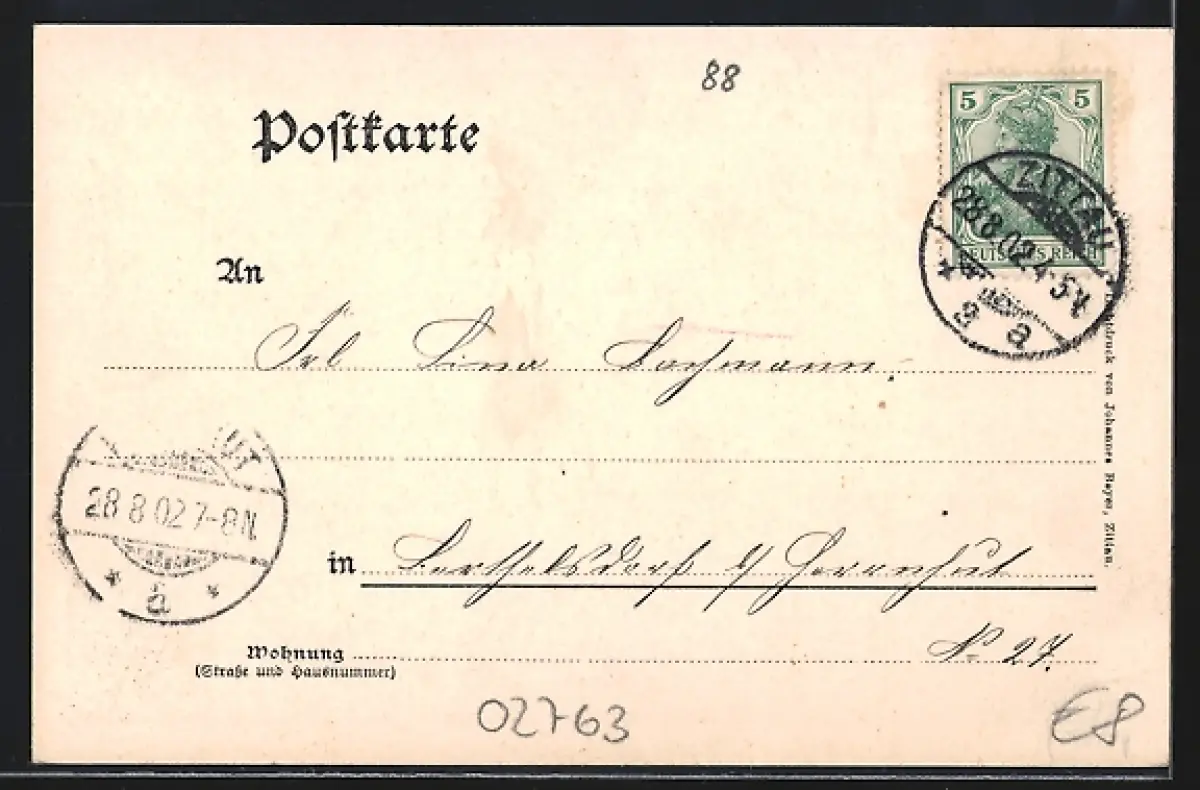 88
Postkarte
5 5
DEUTSCHES REICH
ZITTAU
28.8.02. 4-5 V.
* a
An
Frl Lina Bachmann.
28 8 02 7-8 N.
* a *
in Berthelsdorf b/ Herrnhut
Wohnung
(Straße und Hausnummer)
No 27.
von Johannes Beyer, Zittau.
02763
€8